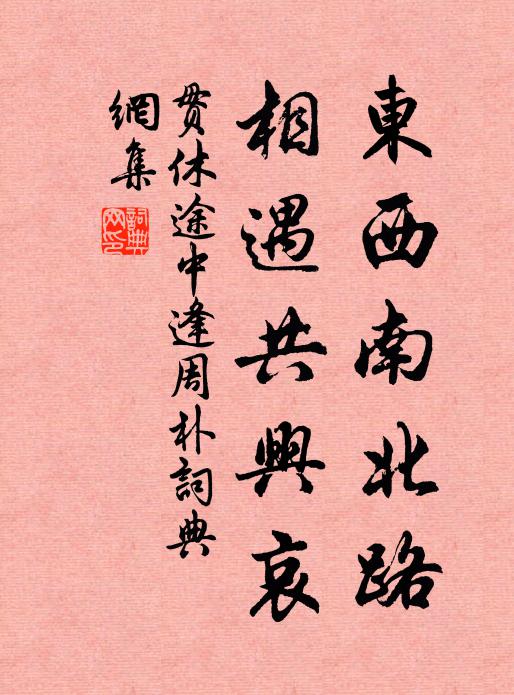 東西南北路
相遇共興哀
貫休途中逢周朴詞典
網集
詞典
網印